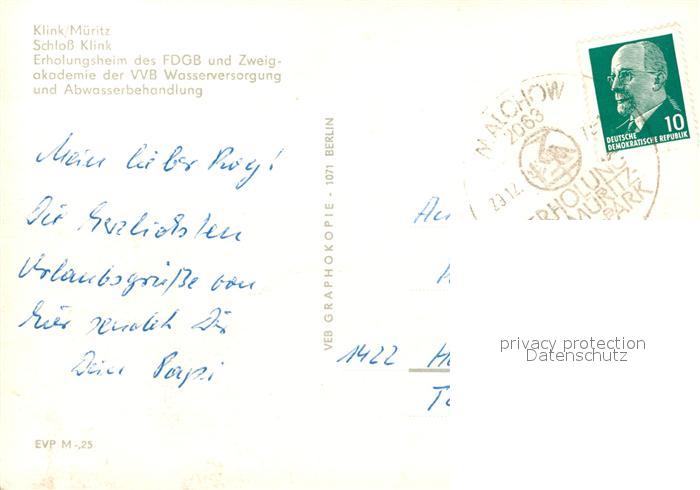 Klink/Müritz
Schloß Klink
Erholungsheim des FDGB und Zweig-
akademie der VVB Wasserversorgung
und Abwasserbehandlung
Mein lieber
Die Herzlichsten
Urlaubsgrüße von
hier sendet Dir
Dein Papi
EVP M -,25
VEB GRAPHOKOPIE - 1071 BERLIN
MALCHOW
2063
23.12.
ERHOLUNG
MÜRITZ-
PARK
10
DEUTSCHE
DEMOKRATISCHE REPUBLIK
An
1422
privacy protection
Datenschutz